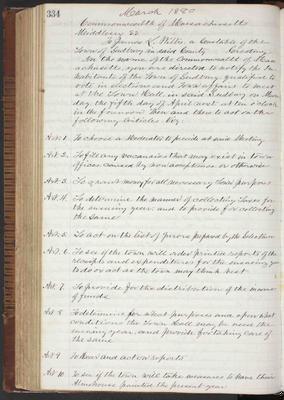 334
March 1880
Commonwealth of Massachusetts
Middlesex SS
To James L. Willis, a Constable of the
Town of Sudbury in said County Greeting
In the name of the Commonwealth of Mass
achusetts, you are directed to notify the In
habitants of the Town of Sudbury, qualified to
vote in elections and Town affairs to meet
at the Town Hall in said Sudbury on Mon
day, the fifth day of April next at ten o'clock
in the forenoon then and there to act on the
following articles Viz:
Art 1. To choose a Moderator to preside at said Meeting
Art 2. To fill any vacancies that may exist in town
offices caused by non acceptance or otherwise
Art 3. To grant money for all necessary Town purposes
Art 4. To determine the manner of collecting Taxes for
the ensuing year and to provide for collecting
the same
Art 5. To act on the list of Jurors prepared by the Selectmen
Art 6. To see if the town will order printed reports of the
receipts and expenditures for the ensuing year
to do or act as the town may think best
Art 7. To provide for the distribution of the income
of funds
Art 8. To determine for what purposes and upon what
conditions the Town Hall may be used the
ensuing year, and provide for taking care of
the same
Art 9. To hear and act on reports
Art 10. To see if the town will take measures to have their
Almshouse painted the present year